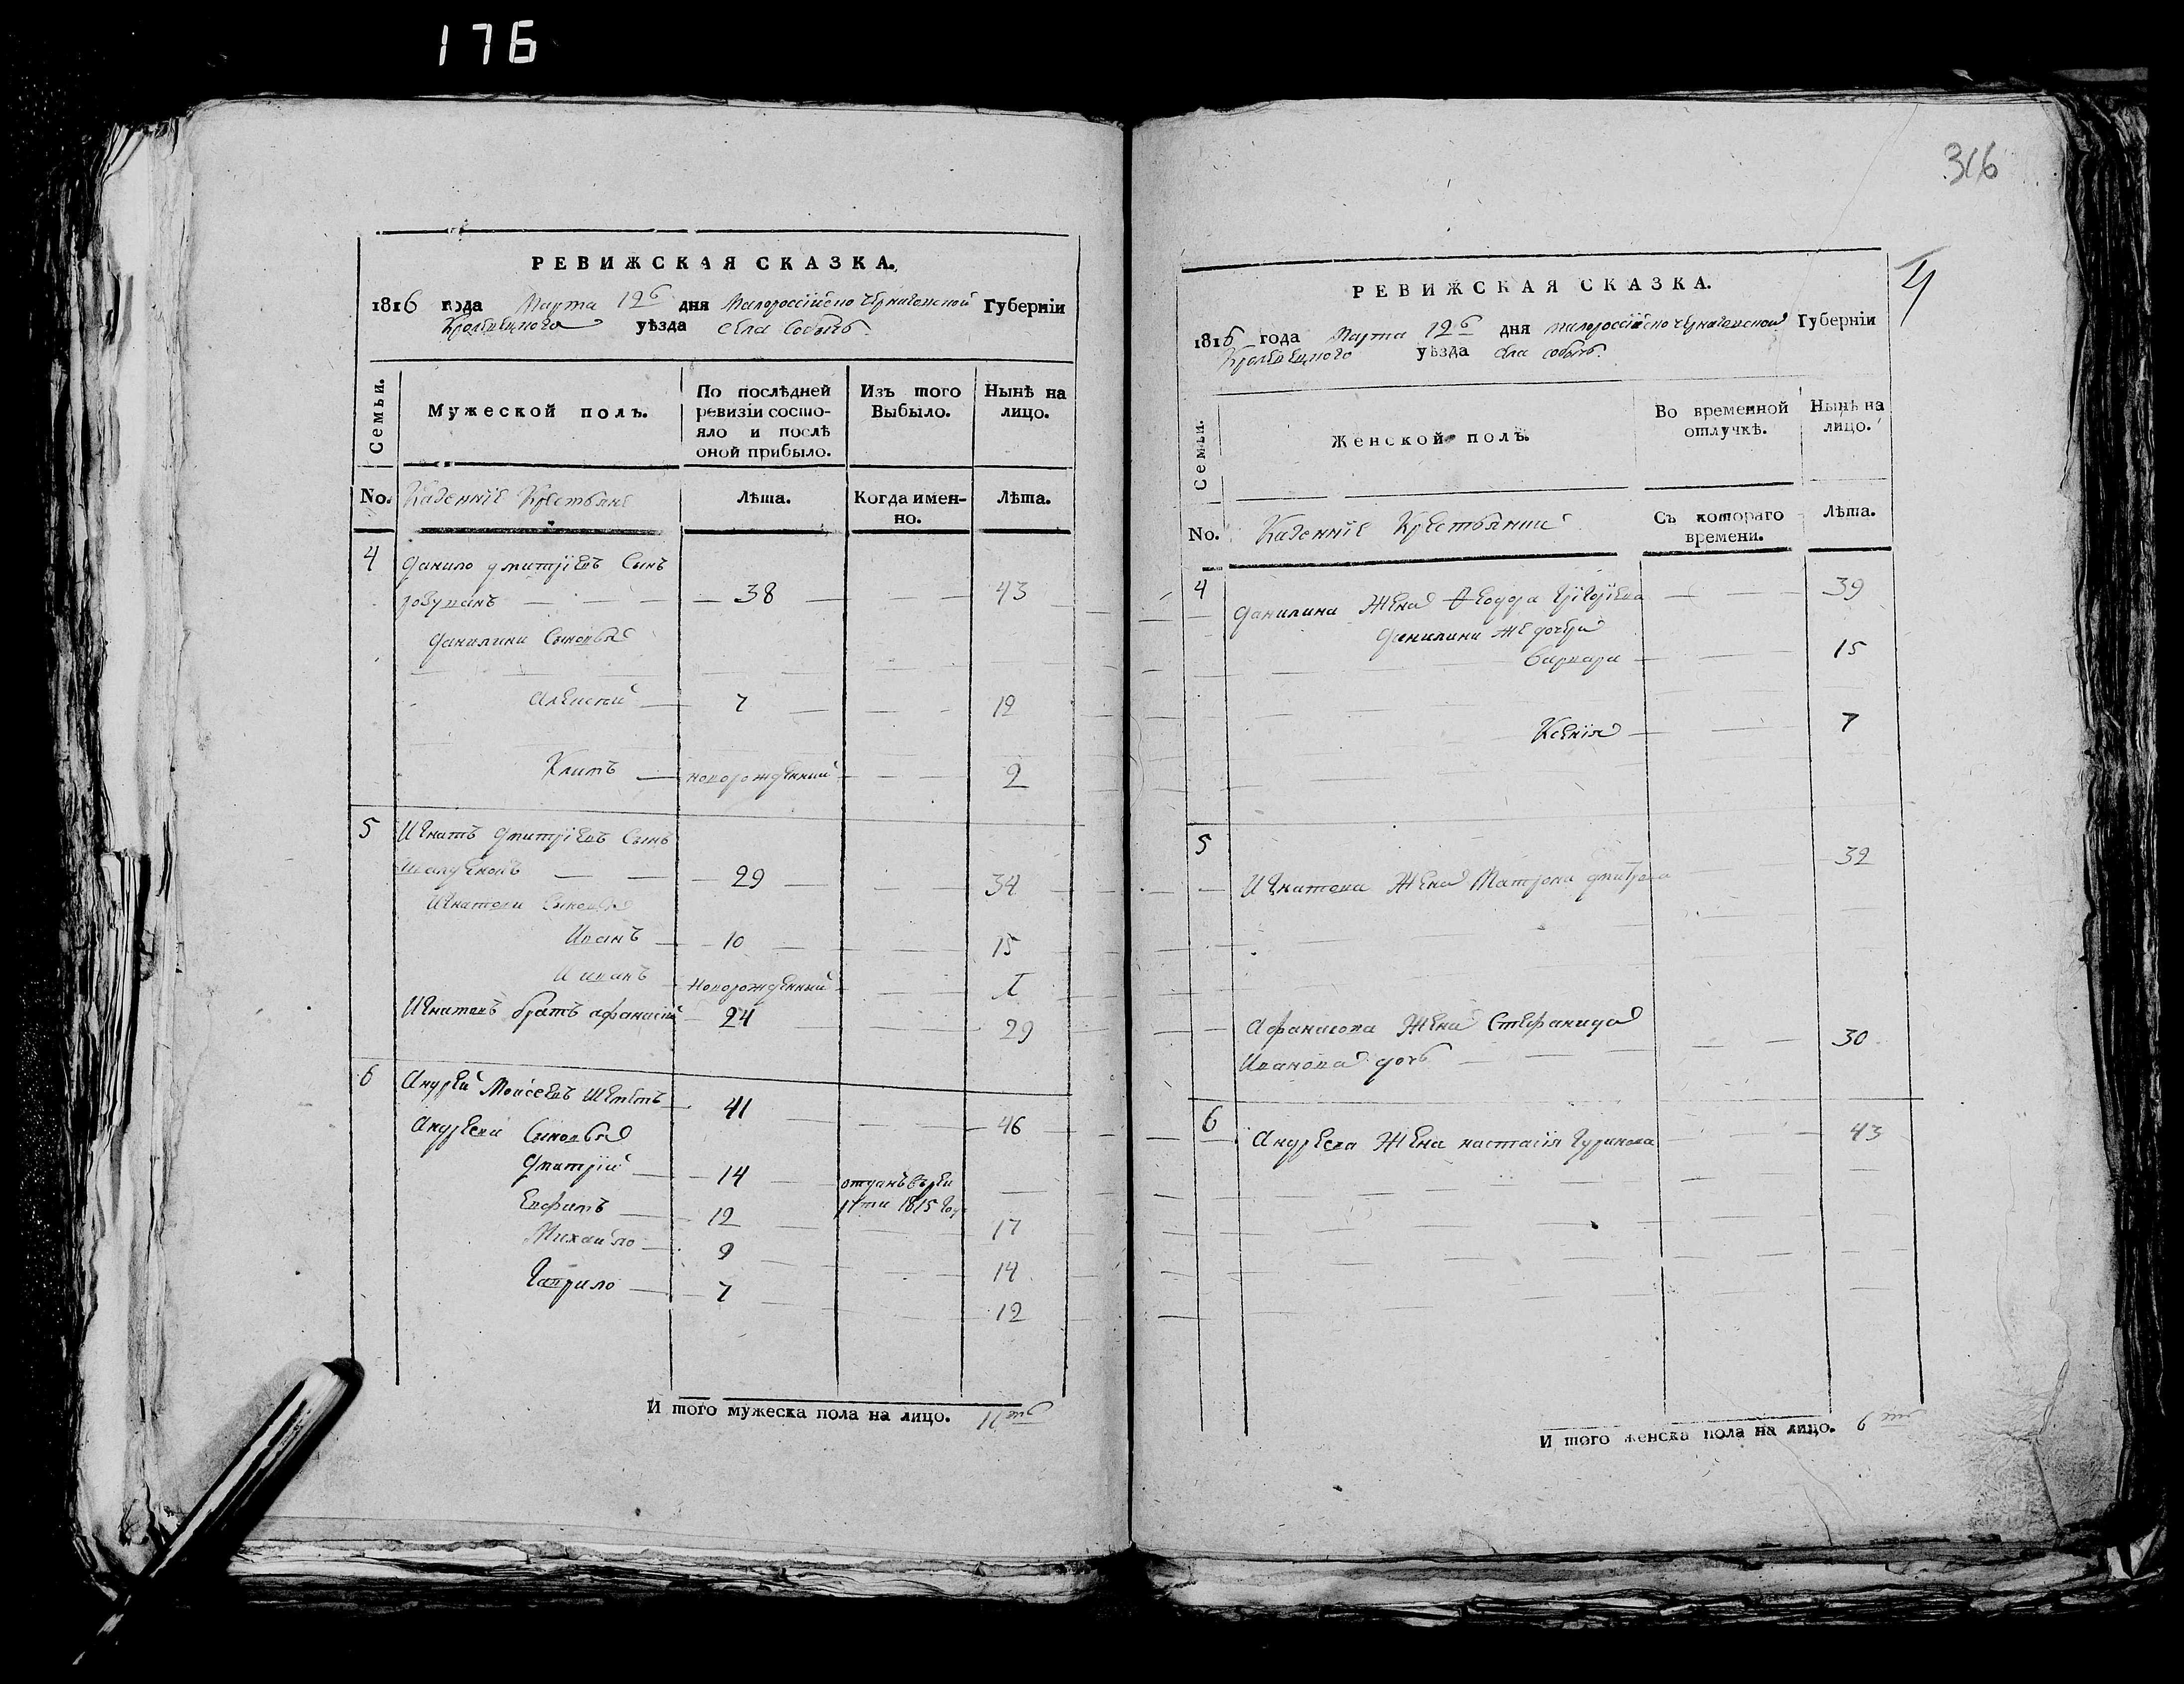 176
316
РЕВИЖСКАЯ СКАЗКА.
1816 года Марта 12б дня Малороссійско Черниговской Губерніи
Кролевецкого уѣзда села Собычъ.
Семьи.
Мужеской полъ.
По послѣдней ревизіи состо-
яло и послѣ
оной прибыло.
Изъ того
Выбыло.
Нынѣ на
лицо.
No. Казенніе Крестьяне
Лѣта.
Когда имен-
но.
Лѣта.
4 Данило Дмитріевъ Сынъ
38 43
Данилини Сыновья
Алексѣй 7 12
Климъ новорожденний 2
5 Игнатъ Дмитріевъ Сынъ
29 34
Игнатови Сыновья
Иванъ 10 15
Иванъ новорожденний 1
Игнатовъ братъ Афанасій 24 29
6 Андрей Моисеевъ 41 46
Андреeви Сыновья
Дмитрій 14 отданъ въ рек
1815 год
Евфимъ 12 17
Михайло 9 14
Гаврило 7 12
И того мужеска пола на лицо. 11ть
4
РЕВИЖСКАЯ СКАЗКА.
1816 года Марта 12б дня Малороссійско Черниговской Губерніи
Кролевецкого уѣзда села Собычъ.
Семьи.
Женской полъ.
Во временной
отлучкѣ.
Нынѣ на
лицо.
No. Казенніе Крестьянки
Съ котораго
времени.
Лѣта.
4 Данилина Жена Ѳеодора Григоріева 39
Данилини же дочери
Варвара 15
Ксенія 7
5 Игнатова Жена Матрона Дмитрова 32
Афанасова Жена Стефанида
Иванова дочь 30
6 Андреева Жена настасія Гуринова 43
И того женска пола на лицо. 6ть